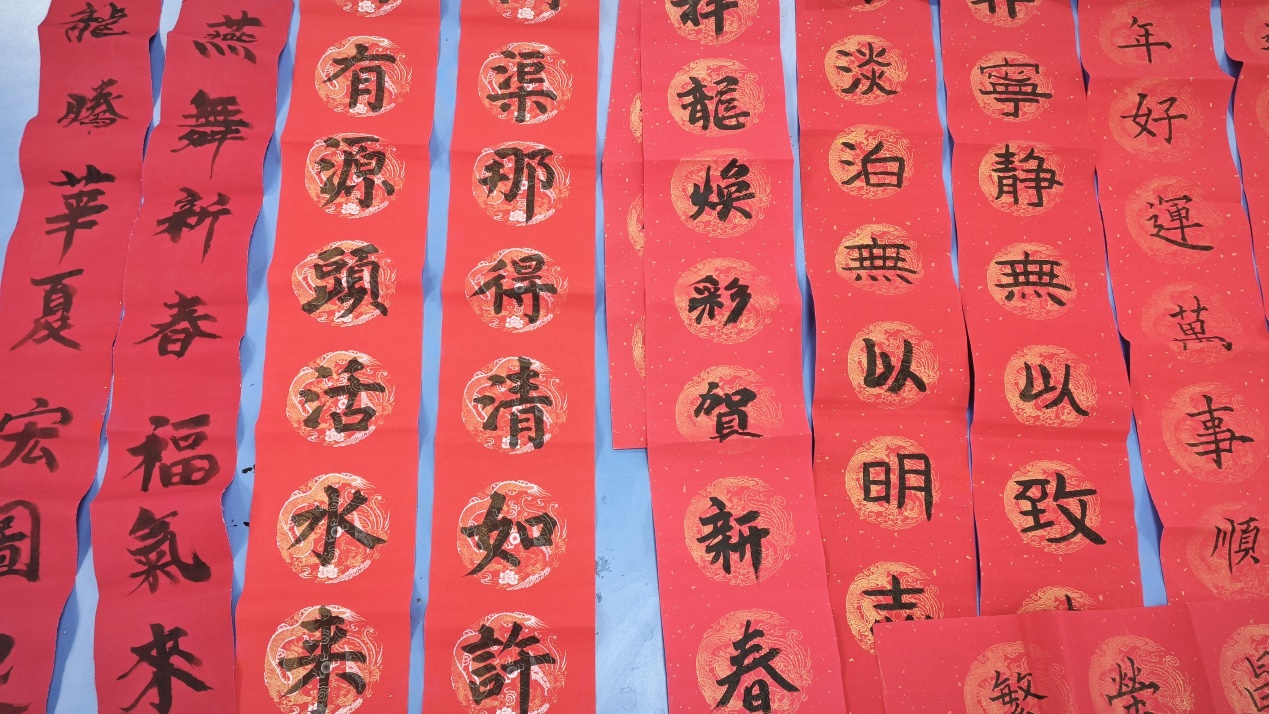 年好運萬事順
非寧静無以致
淡泊無以明志
祥龍煥彩賀新春
渠那得清如許
有源頭活水来
燕舞新春福氣來
龍騰華夏宏圖
繁榮